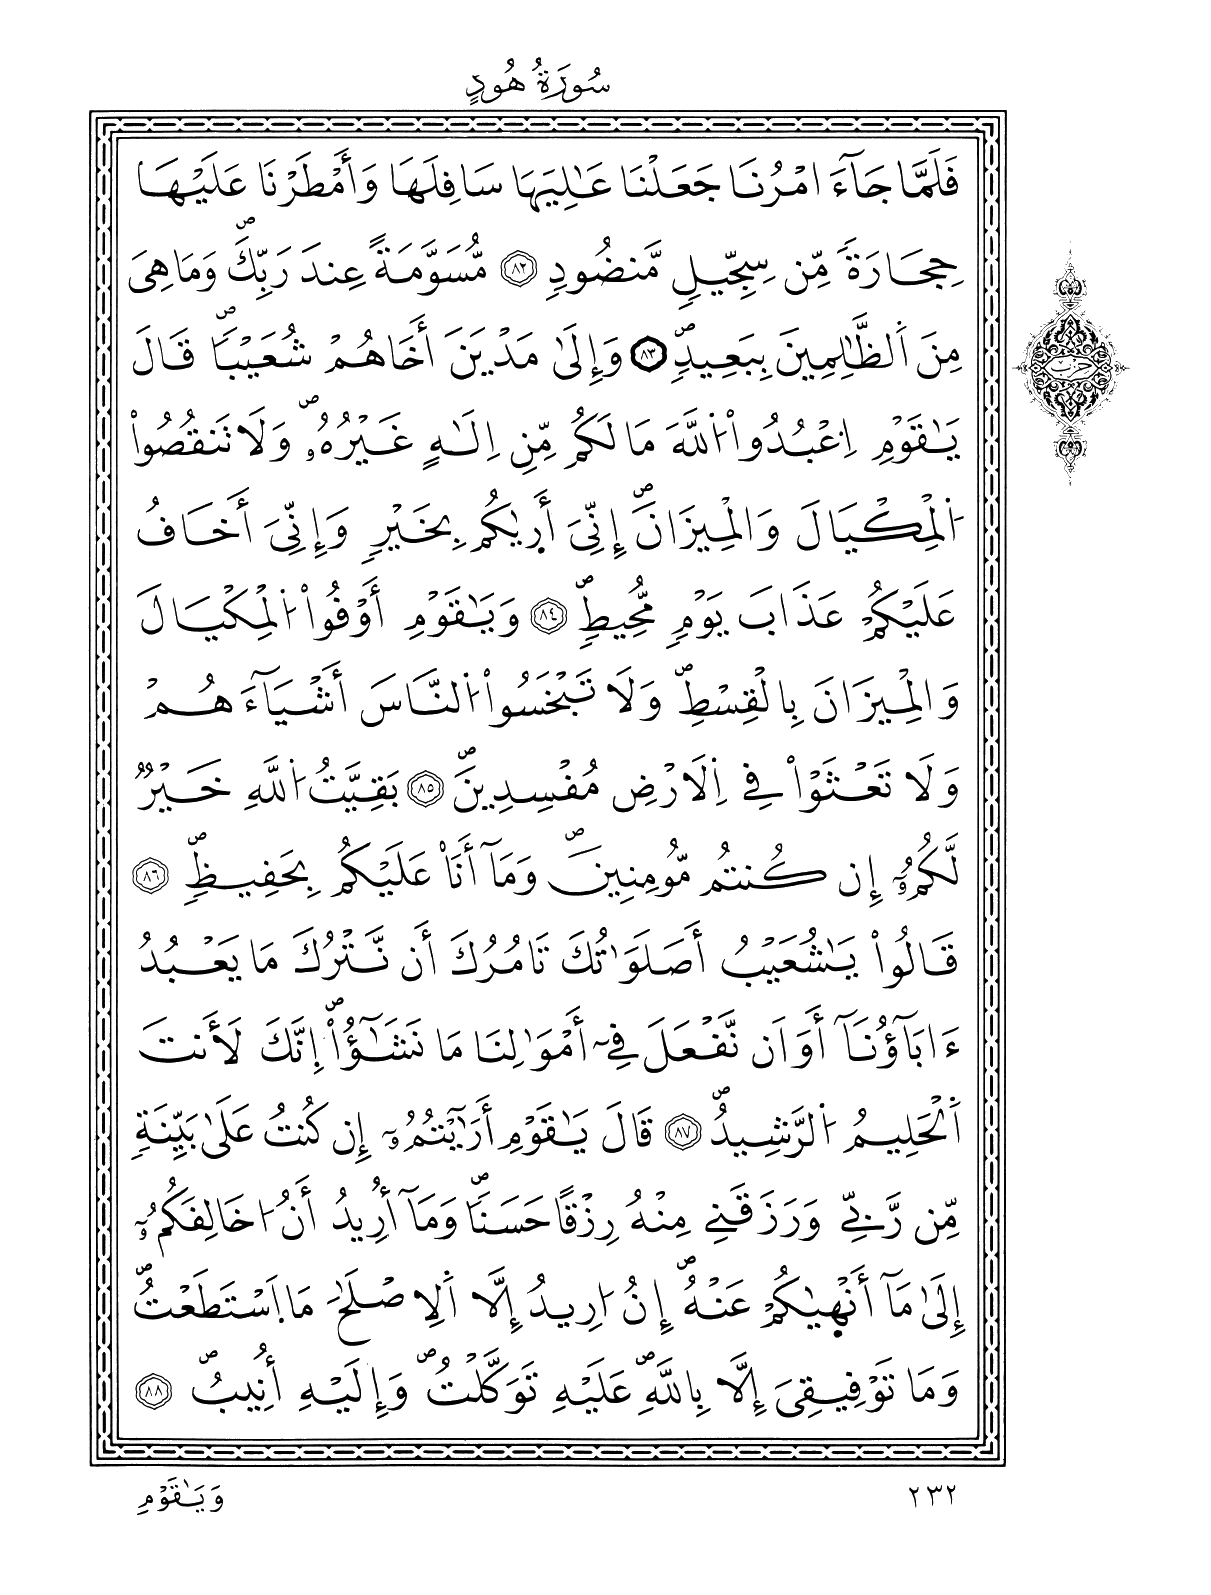 سُورَةُ هُودٍ
فَلَمَّا جَآءَ امْرُنَا جَعَلْنَا عَٰلِيَهَا سَافِلَهَا وَأَمْطَرْنَا عَلَيْهَا
حِجَارَةً مِّن سِجِّيلٍ مَّنضُودٍ ٨٢ مُّسَوَّمَةً عِندَ رَبِّكَۖ وَمَا هِيَ
مِنَ اَ۬لظَّٰلِمِينَ بِبَعِيدٍۖ ٨٣ وَإِلَىٰ مَدْيَنَ أَخَاهُمْ شُعَيْباٗۖ قَالَ
يَٰقَوْمِ اِ۟عْبُدُواْ اُ۬للَّهَ مَا لَكُم مِّنِ اِلَٰهٍ غَيْرُهُۥۖ وَلَا تَنقُصُواْ
اُ۬لْمِكْيَالَ وَالْمِيزَانَۖ إِنِّيَ أَر۪ىٰكُم بِخَيْرٍ وَإِنِّيَ أَخَافُ
عَلَيْكُمْ عَذَابَ يَوْمٍ مُّحِيطٍۖ ٨٤ وَيَٰقَوْمِ أَوْفُواْ اُ۬لْمِكْيَالَ
وَالْمِيزَانَ بِالْقِسْطِۖ وَلَا تَبْخَسُواْ اُ۬لنَّاسَ أَشْيَآءَهُمْ
وَلَا تَعْثَوْاْ فِے اِ۬لَارْضِ مُفْسِدِينَۖ ٨٥ بَقِيَّتُ اُ۬للَّهِ خَيْرٌ
لَّكُمُۥٓ إِن كُنتُم مُّومِنِينَۖ وَمَآ أَنَا۠ عَلَيْكُم بِحَفِيظٍۖ ٨٦
قَالُواْ يَٰشُعَيْبُ أَصَلَوَٰتُكَ تَامُرُكَ أَن نَّتْرُكَ مَا يَعْبُدُ
ءَابَآؤُنَآ أَوَ اَن نَّفْعَلَ فِےٓ أَمْوَٰلِنَا مَا نَشَٰٓؤُاْۖ اِنَّكَ لَأَنتَ
اَ۬لْحَلِيمُ اُ۬لرَّشِيدُۖ ٨٧ قَالَ يَٰقَوْمِ أَرَٰٓيْتُمُۥٓ إِن كُنتُ عَلَىٰ بَيِّنَةٍ
مِّن رَّبِّے وَرَزَقَنِے مِنْهُ رِزْقاً حَسَناٗۖ وَمَآ أُرِيدُ أَنُ اخَالِفَكُمُۥٓ
إِلَىٰ مَآ أَنْه۪ىٰكُمْ عَنْهُۖ إِنُ ارِيدُ إِلَّا اَ۬لِاصْلَٰحَ مَا اَ۪سْتَطَعْتُۖ
وَمَا تَوْفِيقِيَ إِلَّا بِاللَّهِۖ عَلَيْهِ تَوَكَّلْتُۖ وَإِلَيْهِ أُنِيبُۖ ٨٨
حزب
وَيَٰقَوْمِ
٢٣٢